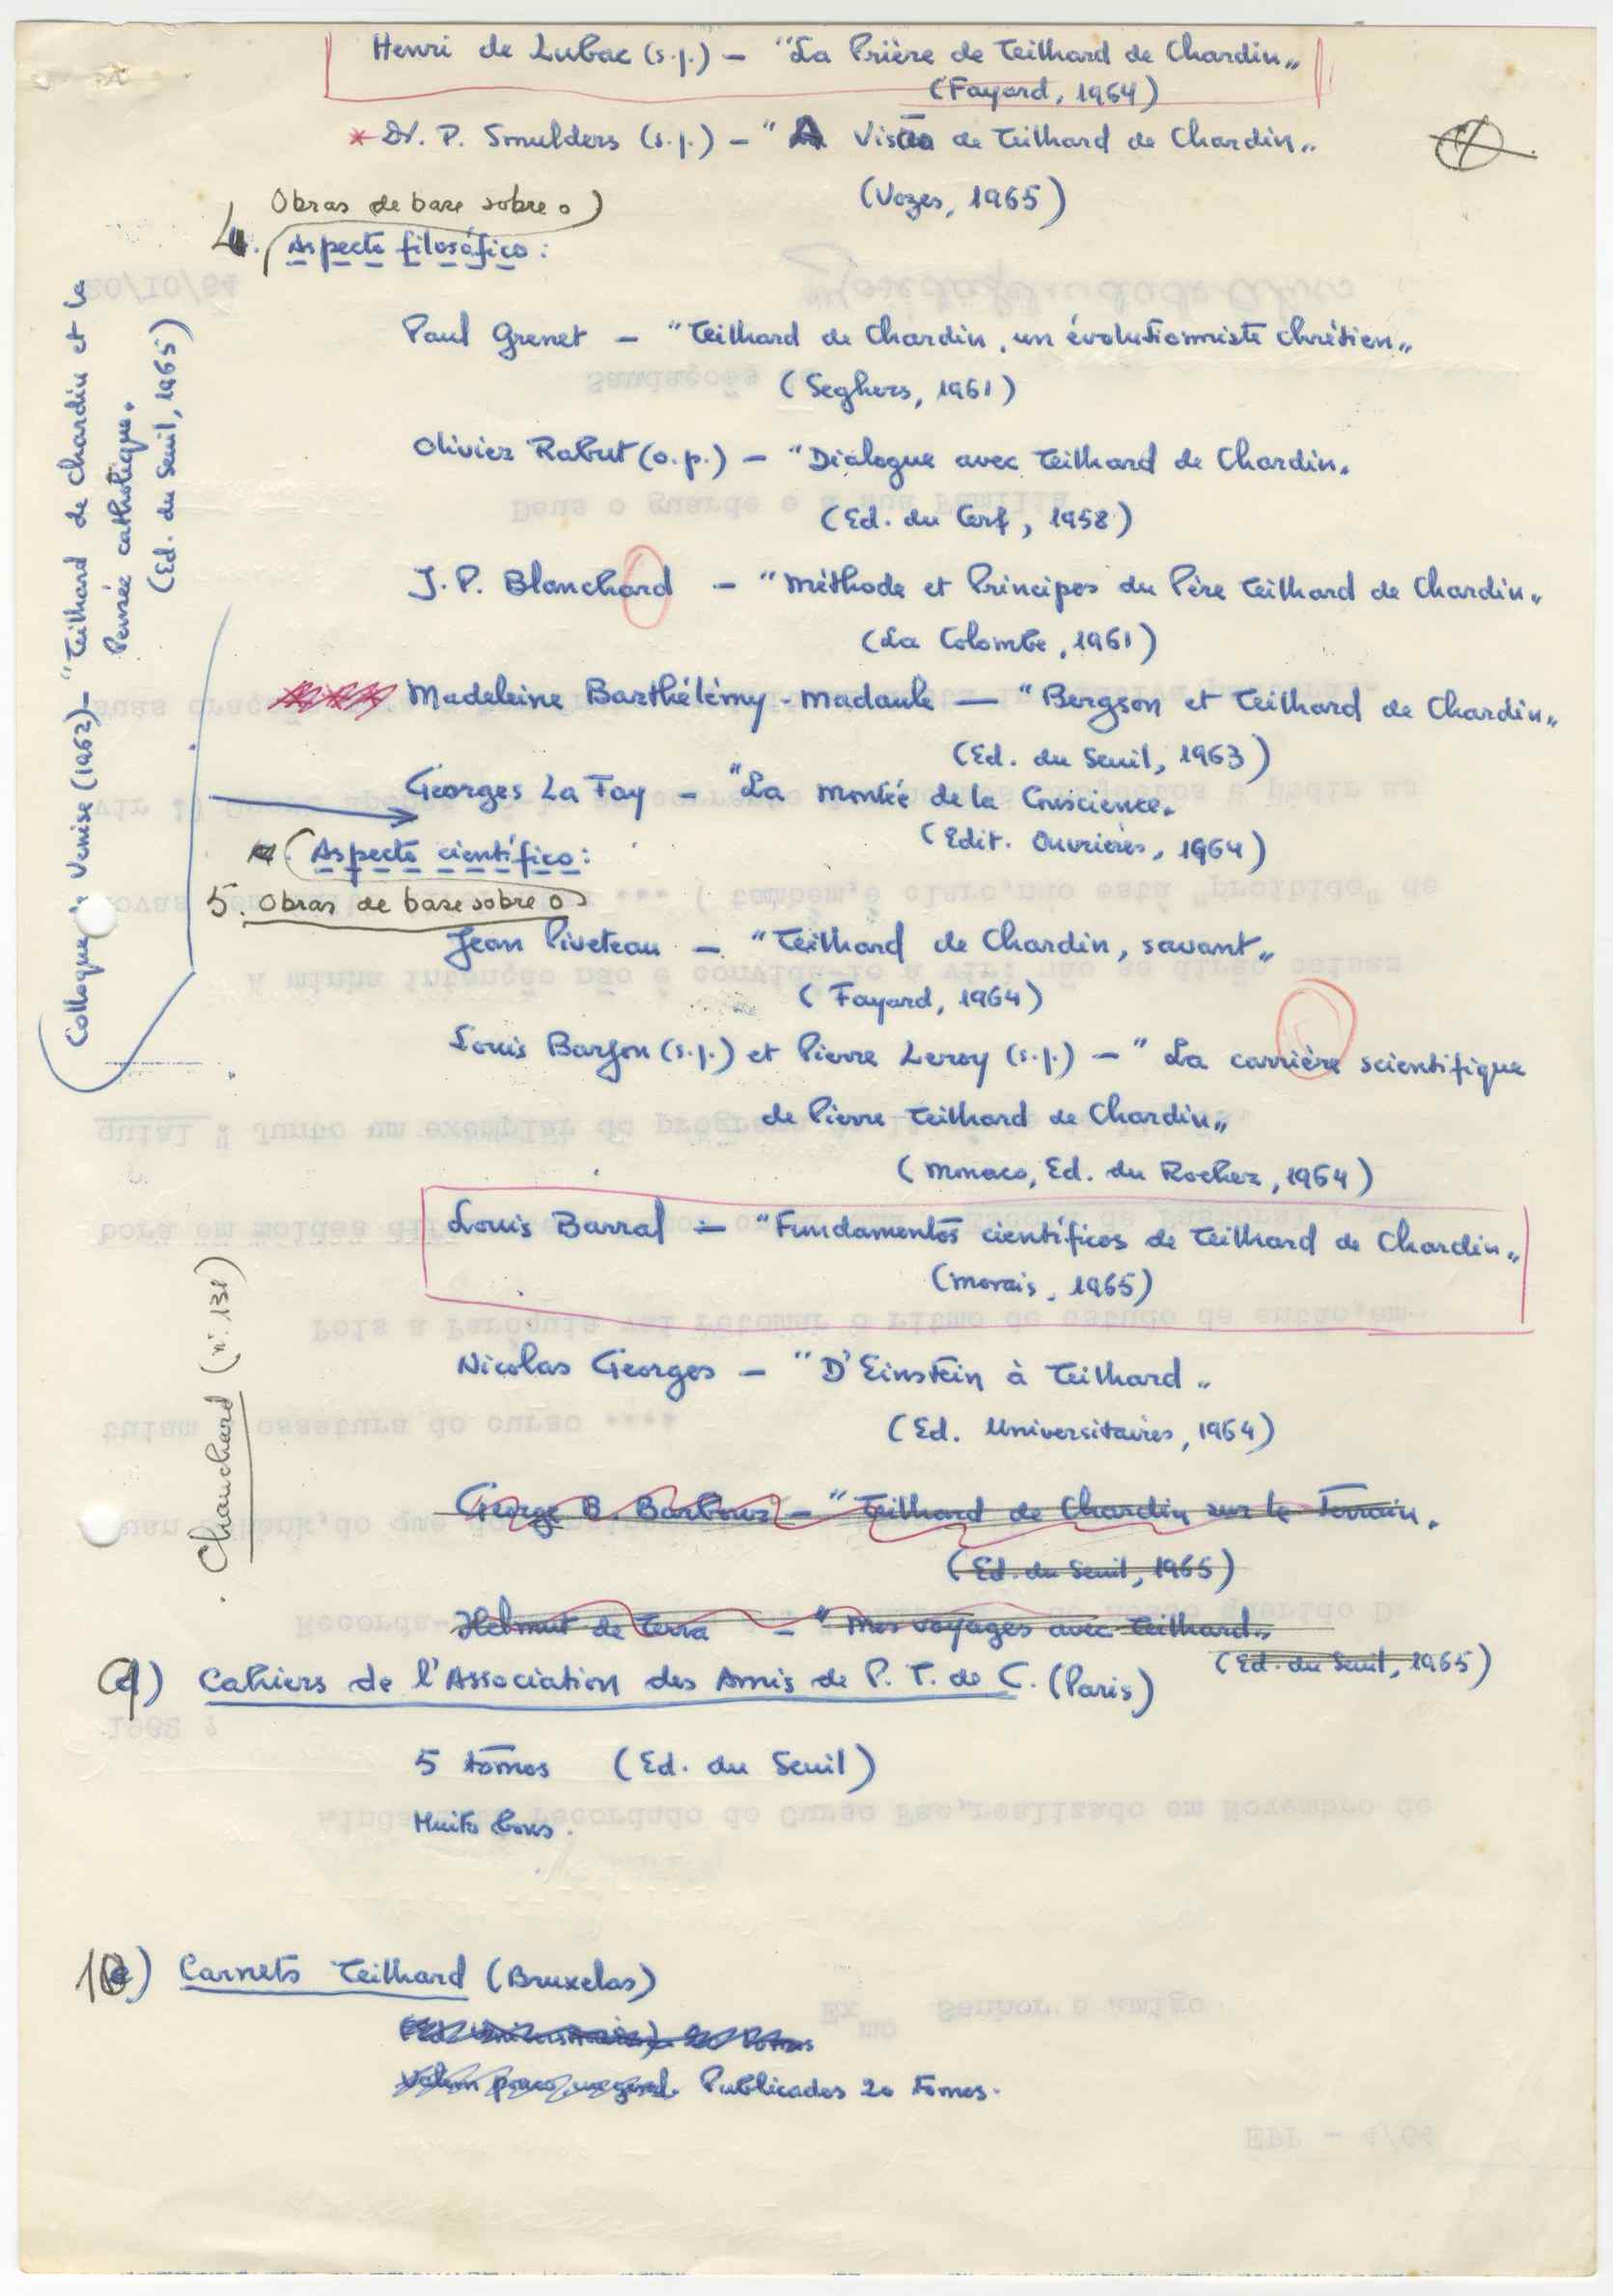 Henri de Lubac (s.j.) – "La Prière de Teilhard de Chardin"
(Fayard, 1964)
* Dr. P. Smulders (s.j.) – "A Visão de Teilhard de Chardin"
(Vozes, 1965)
Obras de base sobre o)
4. (Aspecto filosófico:
Paul Grenet – "Teilhard de Chardin, un évolutionniste chrétien"
(Seghers, 1961)
Olivier Rabut (o.p.) – "Dialogue avec Teilhard de Chardin"
(Ed. du Cerf, 1958)
J. P. Blanchard – "Méthode et Principes du Père Teilhard de Chardin"
(La Colombe, 1961)
Madeleine Barthélémy-Madaule — "Bergson et Teilhard de Chardin"
(Ed. du Seuil, 1963)
Georges La Fay – "La Montée de la Conscience"
(Edit. Ouvrières, 1964)
(Aspecto científico:
5. Obras de base sobre o)
Jean Piveteau – "Teilhard de Chardin, savant"
(Fayard, 1964)
Louis Barjon (s.j.) et Pierre Leroy (s.j.) – "La carrière scientifique
de Pierre Teilhard de Chardin"
(Monaco, Ed. du Rocher, 1964)
Louis Barral – "Fundamentos científicos de Teilhard de Chardin"
(Morais, 1965)
Nicolas Georges – "D'Einstein à Teilhard"
(Ed. Universitaires, 1964)
George B. Barbour – "Teilhard de Chardin sur le terrain"
(Ed. du Seuil, 1965)
Helmut de Terra – "Mes voyages avec Teilhard"
(Ed. du Seuil, 1965)
Cahiers de l'Association des Amis de P. T. de C. (Paris)
5 tomos (Ed. du Seuil)
Muito bons.
Carnets Teilhard (Bruxelas)
Publicados 20 tomos.
Colloque de Venise (1962) – "Teilhard de Chardin et la
Pensée catholique"
(Ed. du Seuil, 1965)
Chauchard (nº. 131)